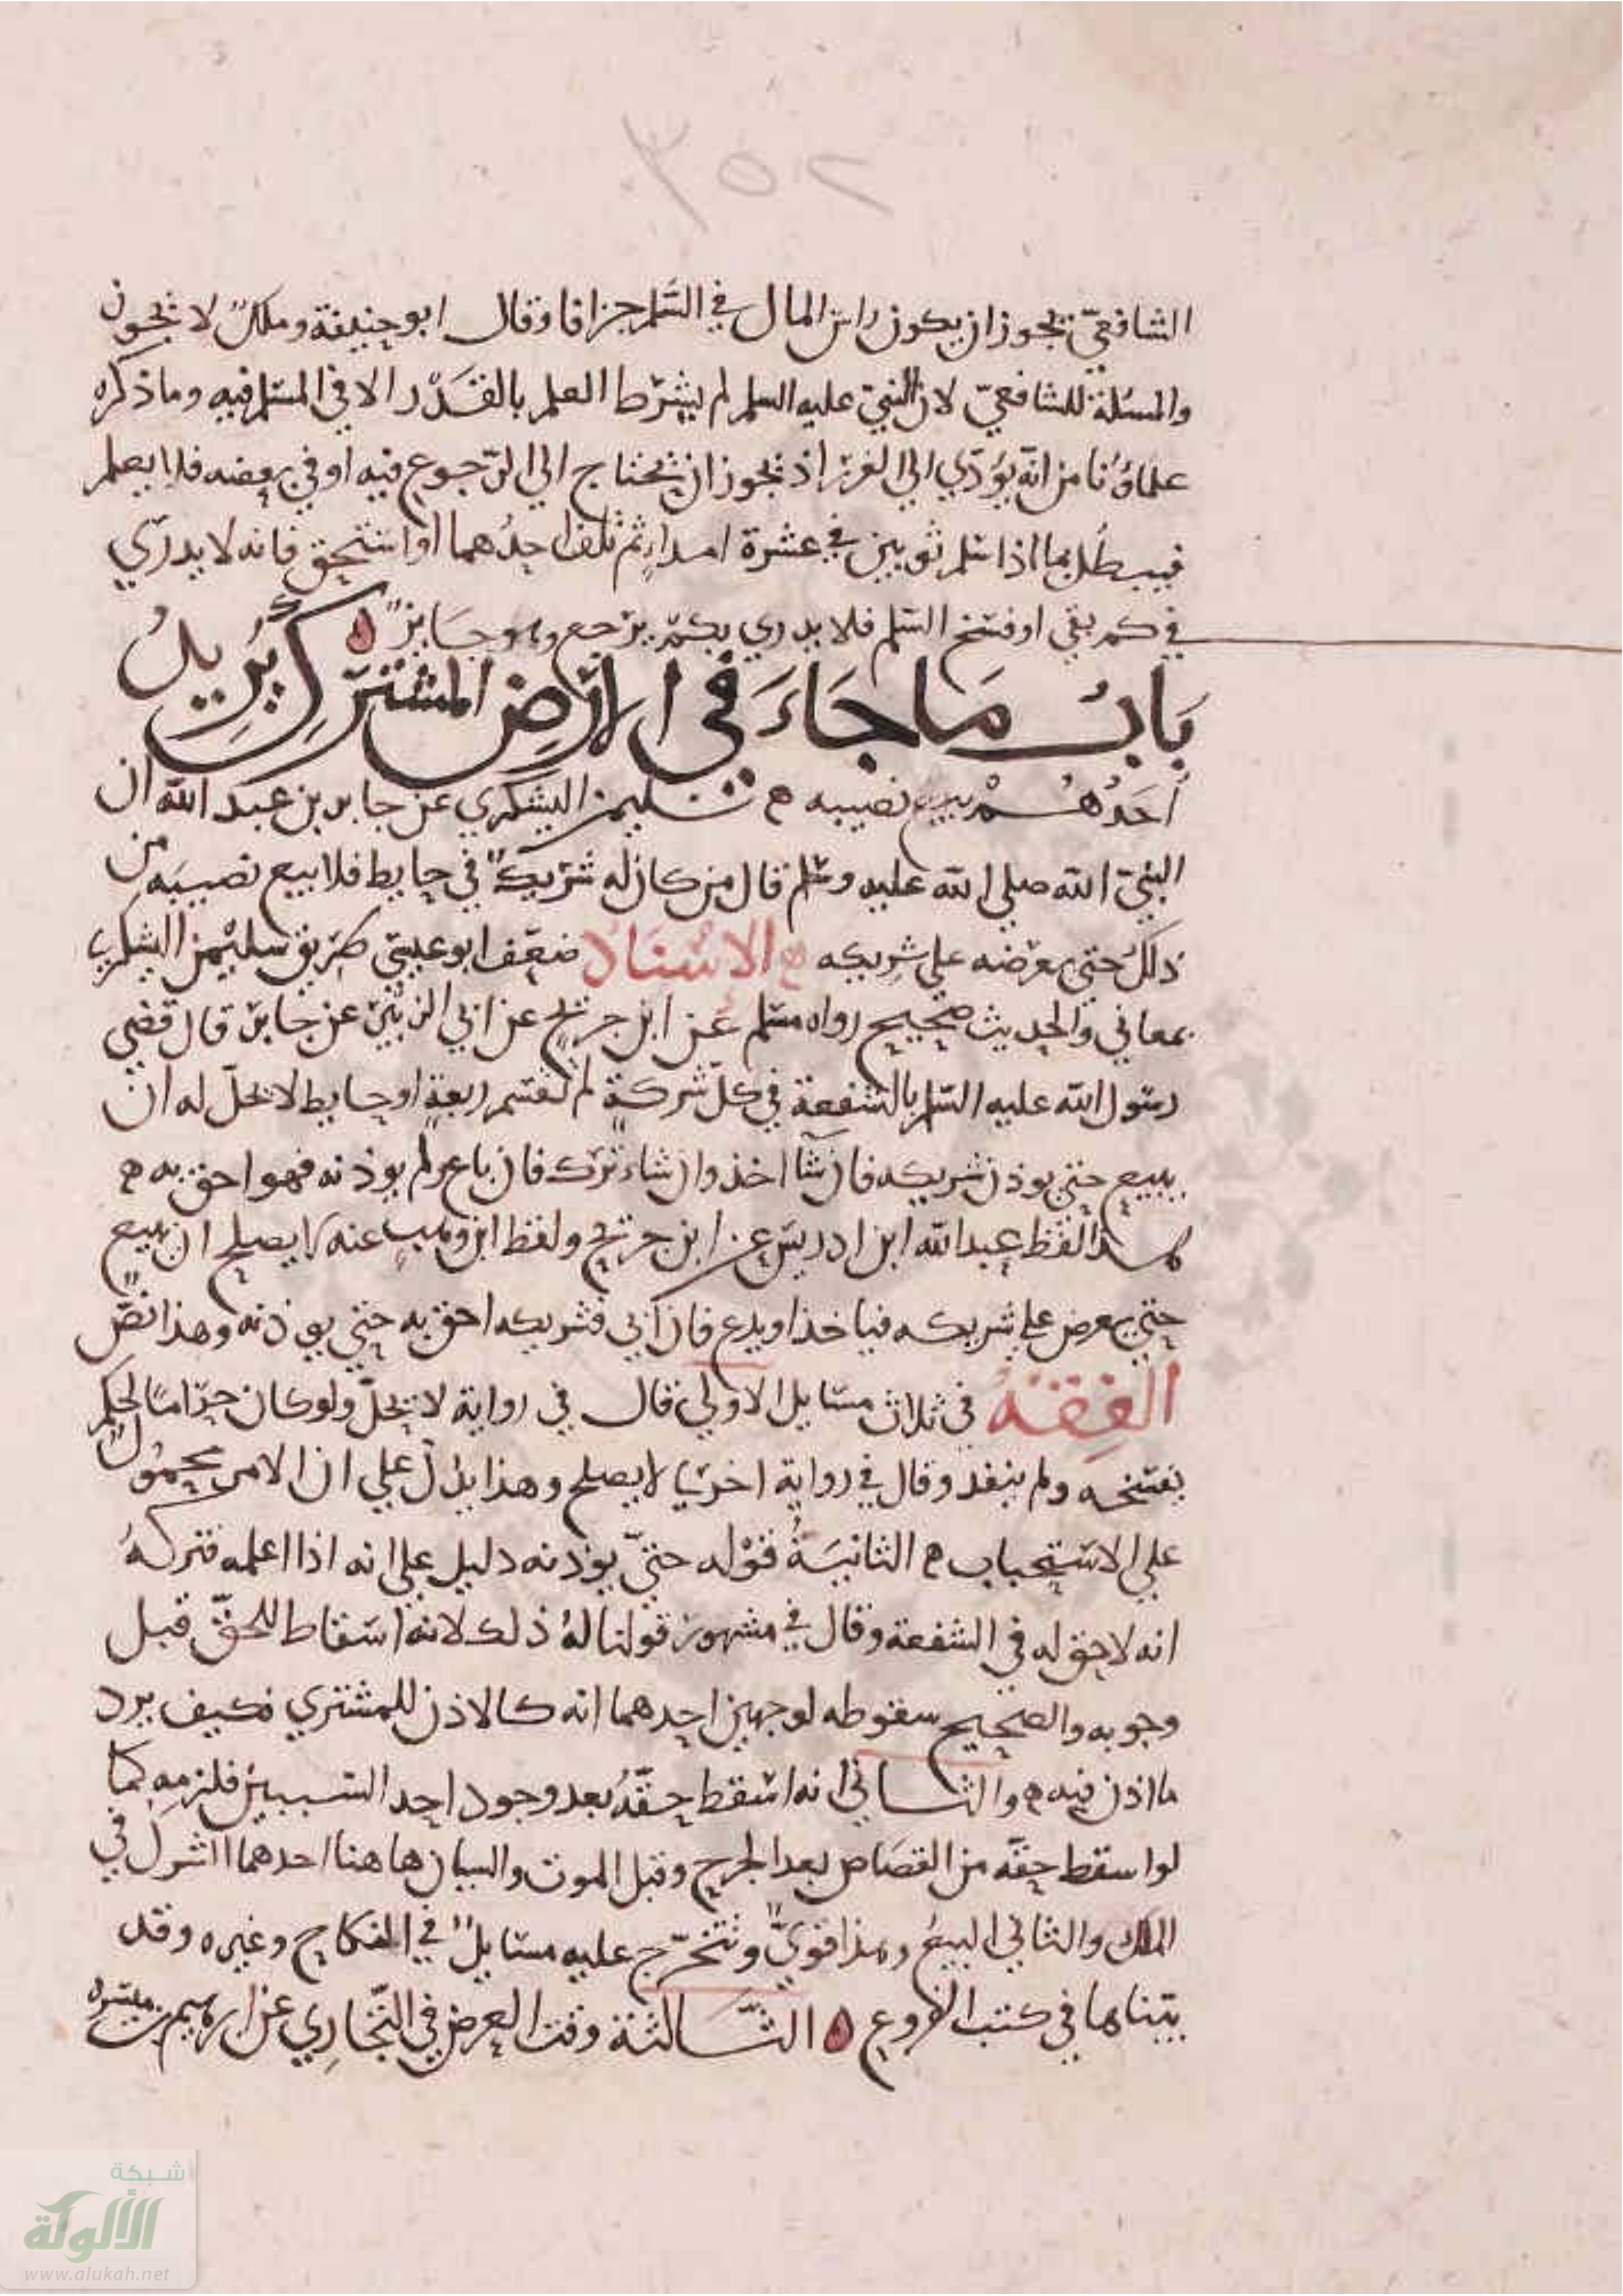 ٢٥٣
الشافعي يجوز ان يكون راس المال في السلم جزافا وقال ابو حنيفة وملك لا يجوز
والمسئلة للشافعي لان النبي عليه السلم لم يشترط العلم بالقدر الا في المسلم فيه وما ذكره
علماؤنا من انه يؤدي الي الغرر اذ يجوز ان يحتاج الي الرجوع فيه او في بعضه فلا يعلم
فيبطل بما اذا سلم ثوبين في عشرة امداد ثم تلف احدهما او استحق فانه لا يدري
في كم بقي او فسخ السلم فلا يدري بكم يرجع وهو جايز ه
باب ما جاء في الارض المشترك يريد
احدهم بيع نصيبه ه سليمن اليشكري عن جابر بن عبد الله ان
النبي الله صلي الله عليه وسلم قال من كان له شريك في حايط فلا يبيع نصيبه من
ذلك حتي يعرضه علي شريكه ه الاسناد ضعف ابو عيسي طريق سليمن اليشكري
بمعاني والحديث صحيح رواه مسلم عن ابن جريج عن ابي الزبير عن جابر قال قضي
رسول الله عليه السلم بالشفعة في كل شركة لم تقسم ربعة او حايط لا يحل له ان
يبيع حتي يوذن شريكه فان شا اخذ وان شاء ترك فان باع ولم يوذنه فهو احق به ه
هذا لفظ عبد الله ابن ادريس عن ابن جريج ولفظ ابن وهب عنه لا يصلح ان يبيع
حتي يعرض علي شريكه فياخذ او يدع فان ابي فشريكه احق به حتي يوذنه وهذا نص
الفقه في ثلاث مسايل الاولي قال في رواية لا يحل ولو كان حراما لحكم
بفسخه ولم ينفذ وقال في رواية اخري لا يصلح وهذا يدل علي ان الامر محمول
علي الاستحباب ه الثانية قوله حتي يوذنه دليل علي انه اذا اعلمه فتركه
انه لا حق له في الشفعة وقال في مشهور قولنا له ذلك لانه اسقاط للحق قبل
وجوبه والصحيح سقوطه لوجهين احدهما انه كالاذن للمشتري فكيف يرد
ما اذن فيه ه والثاني انه اسقط حقه بعد وجود احد السببين فلزمه كما
لو اسقط حقه من القصاص بعد الجرح وقبل الموت والسببان هاهنا احدهما الشرك في
الملك والثاني البيع وهذا قوي وتتخرج عليه مسايل في النكاح وغيره وقد
بيناها في كتب الفروع ه الثالثة وقت العرض في البخاري عن ابرهيم بن ميسره
شبكة
الألوكة
www.alukah.net